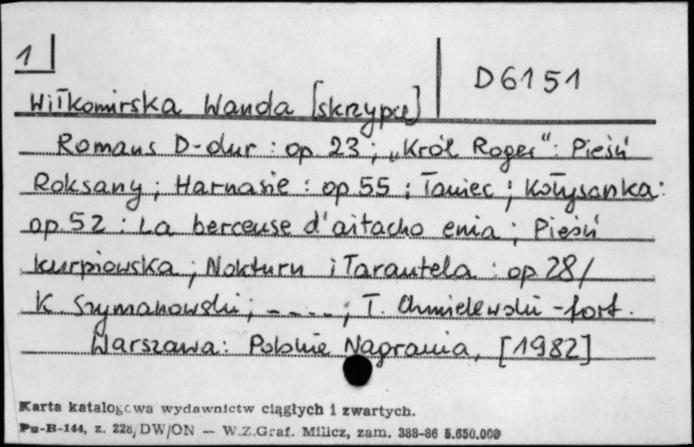 1
D6151
Wiłkomirska Wanda [skrzypce]
Romans D-dur : op. 23 ; „Król Roger" : Pieśń
Roksany ; Harnasie : op. 55 : Taniec ; Kołysanka :
op. 52 : La berceuse d'aitacho enia ; Pieśń
kurpiowska ; Nokturn i Tarantela : op. 28 /
K. Szymanowski ; - - - - ; T. Chmielewski - fort.
Warszawa : Polskie Nagrania, [1982]
Karta katalogowa wydawnictw ciągłych i zwartych.
Pu-B-144, z. 228/DW/ON — W.Z.Graf. Milicz, zam. 388-86 5.650.000